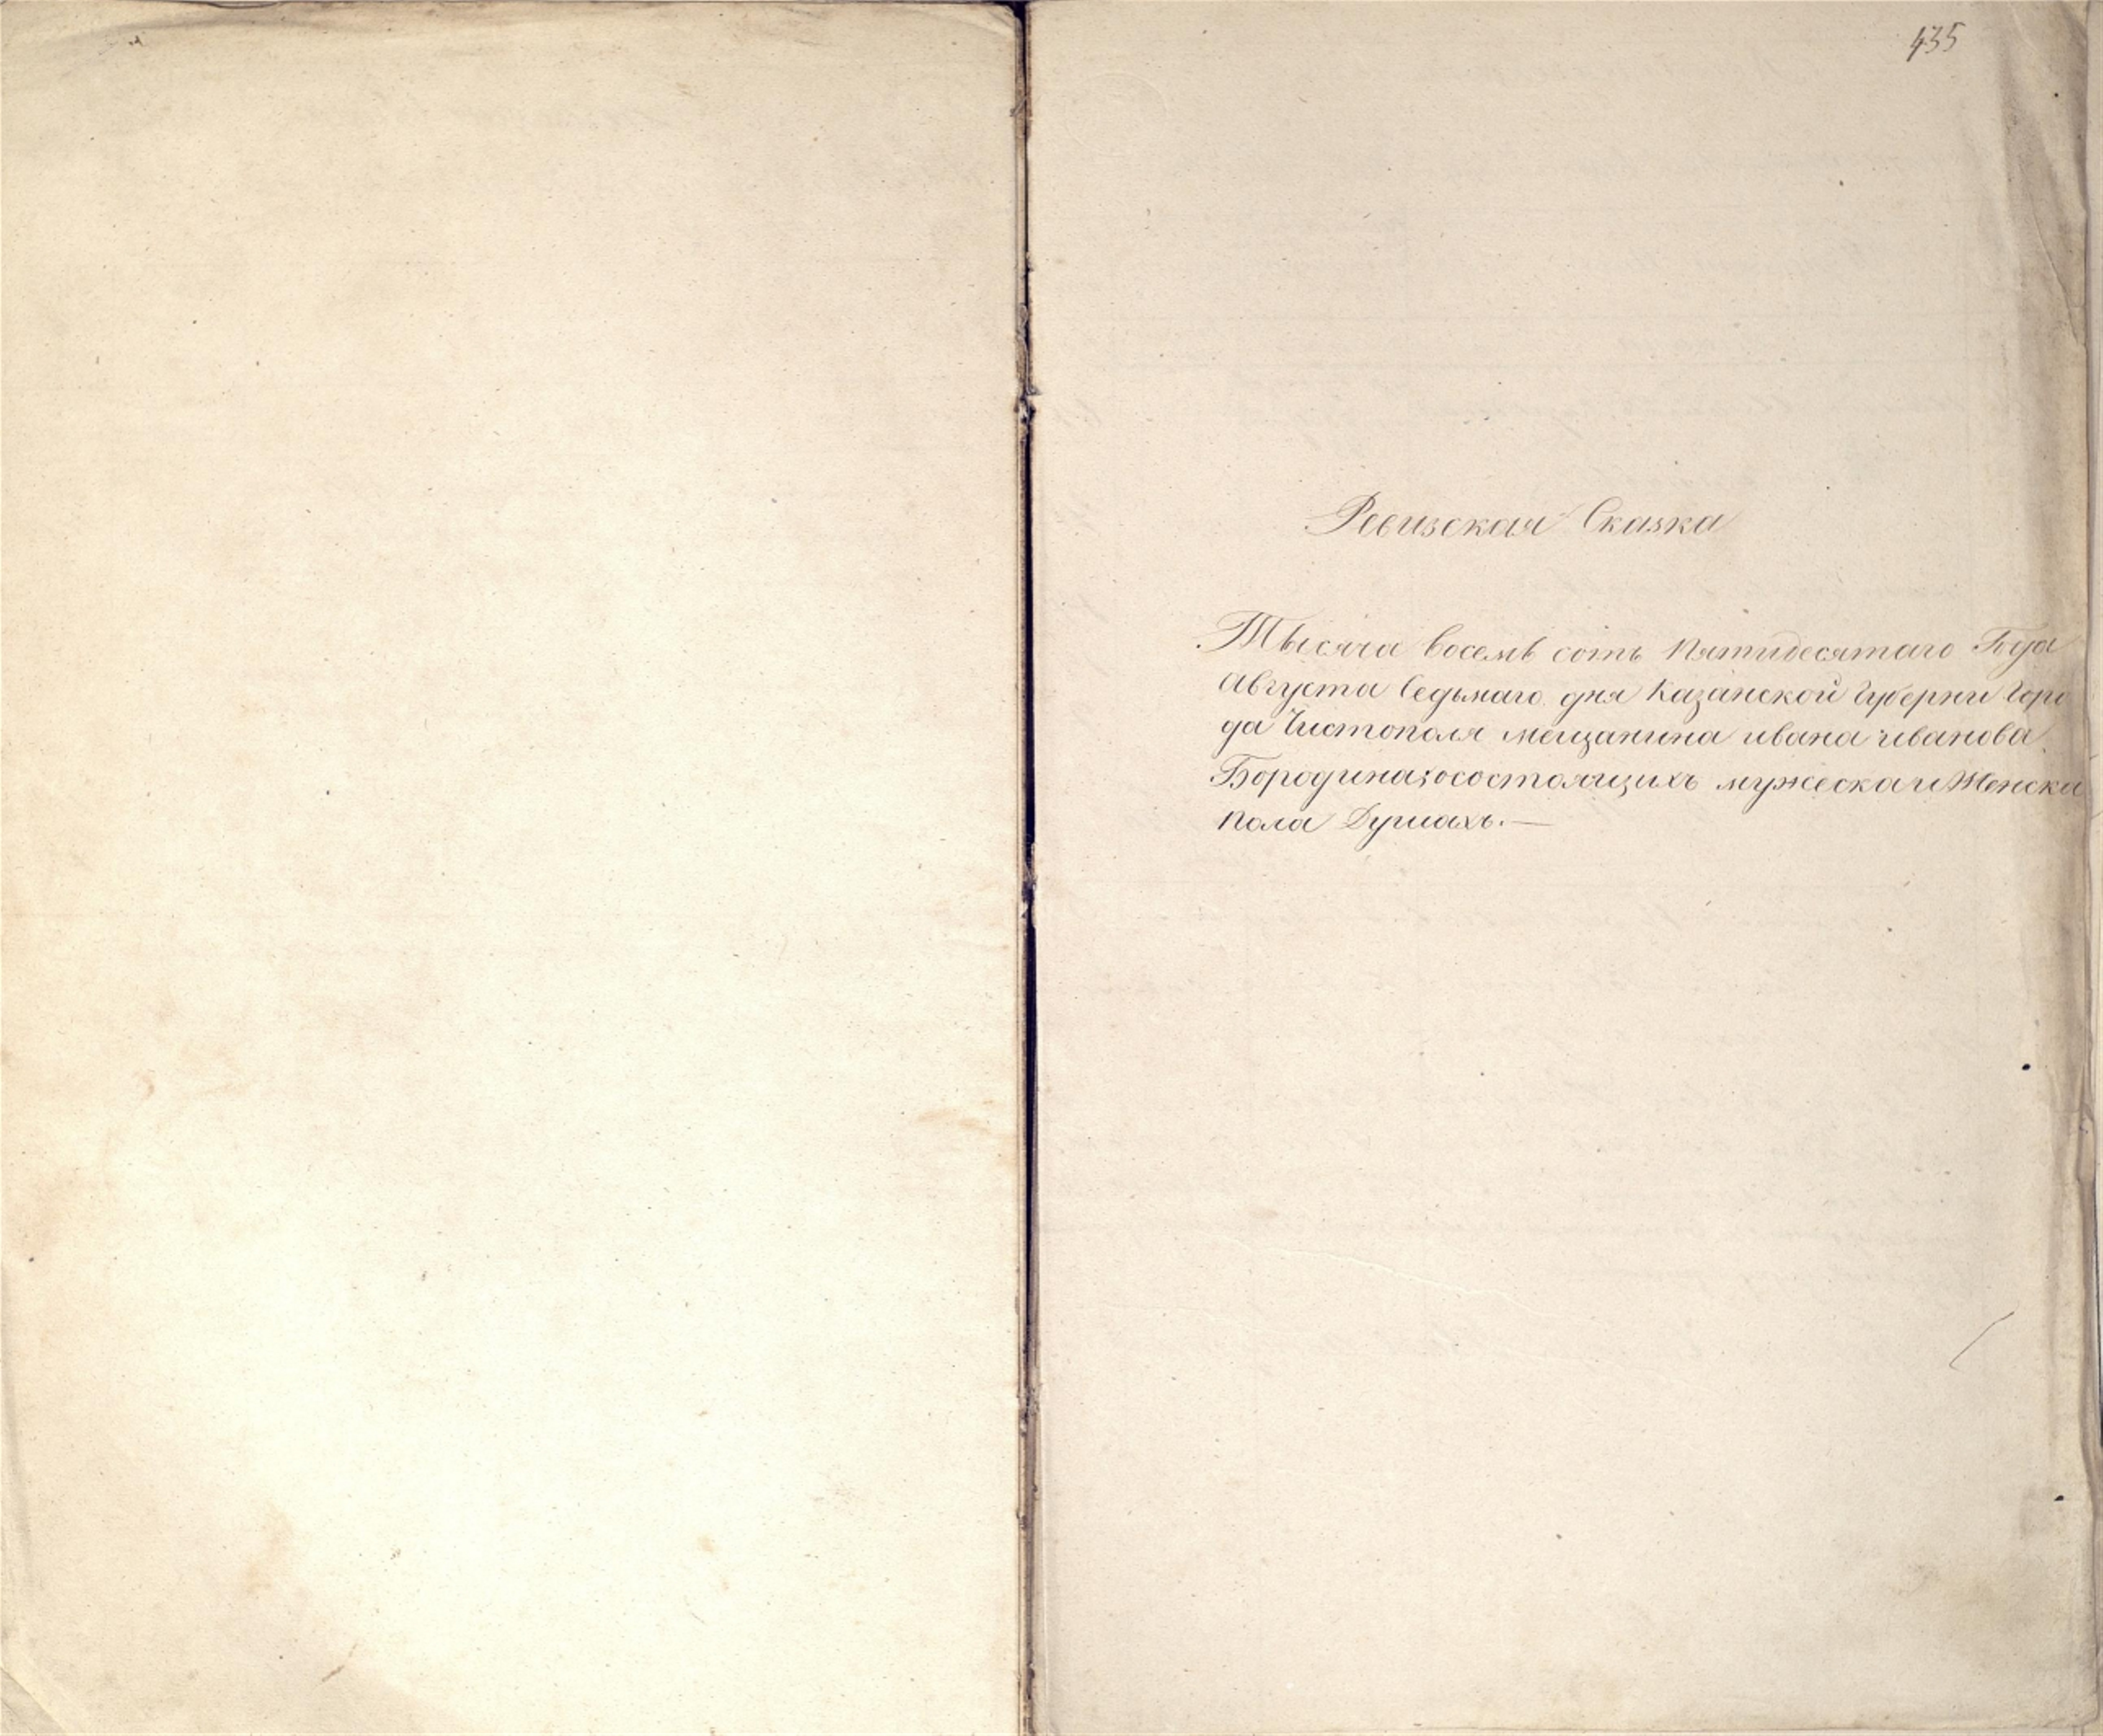 435
Ревизская Сказка
Тысяча восемь сотъ Пятидесятаго Года
Августа Седьмаго дня Казанской Губерни Горо
да Чистополя мещанина ивана иванова
Бородина; о состоящихъ мужеска и Женска
пола Душахъ.—